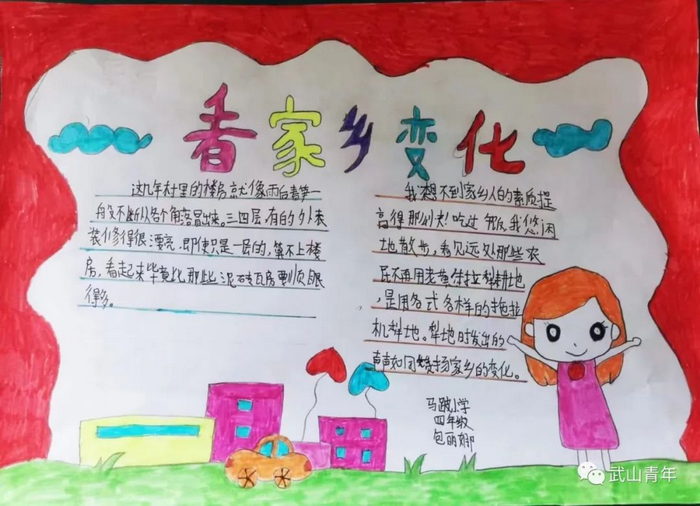 香家乡变化
这几年村里的楼房就像雨后春笋一
般不断从各个角落冒出来。三四层有的外表
装修得很漂亮.即使只是一层的,算不上楼
房,看起来毕竟比那些泥砖瓦房要顺眼
得多。
我想不到家乡人的素质提
高得那么快!吃过饭后,我悠闲
地散步,看见远处那些农
民不再用老黄牛拉犁耕地
,是用各式各样的拖拉
机犁地。犁地时发出的
声
家乡的变化。
马跛小学
四年级
包丽娜
武山青年